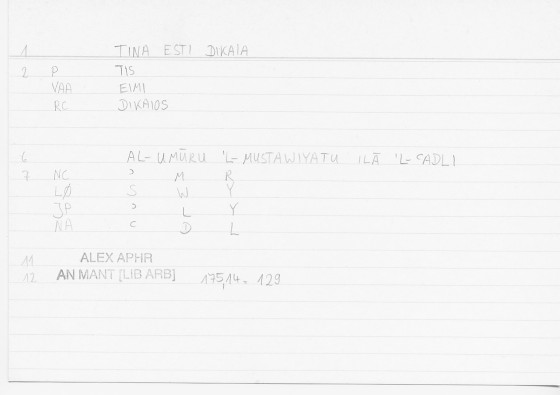 1 TINA ESTI DIKAIA
2 P TIS
VAA EIMI
RC DIKAIOS
6 AL-UMŪRU 'L-MUSTAWIYATU ILĀ 'L-ʿADLI
7 NC ʾ M R
LØ S W Y
3P ʾ L Y
NA ʿ D L
11 ALEX APHR
12 AN MANT [LIB ARB] 175,14 = 129